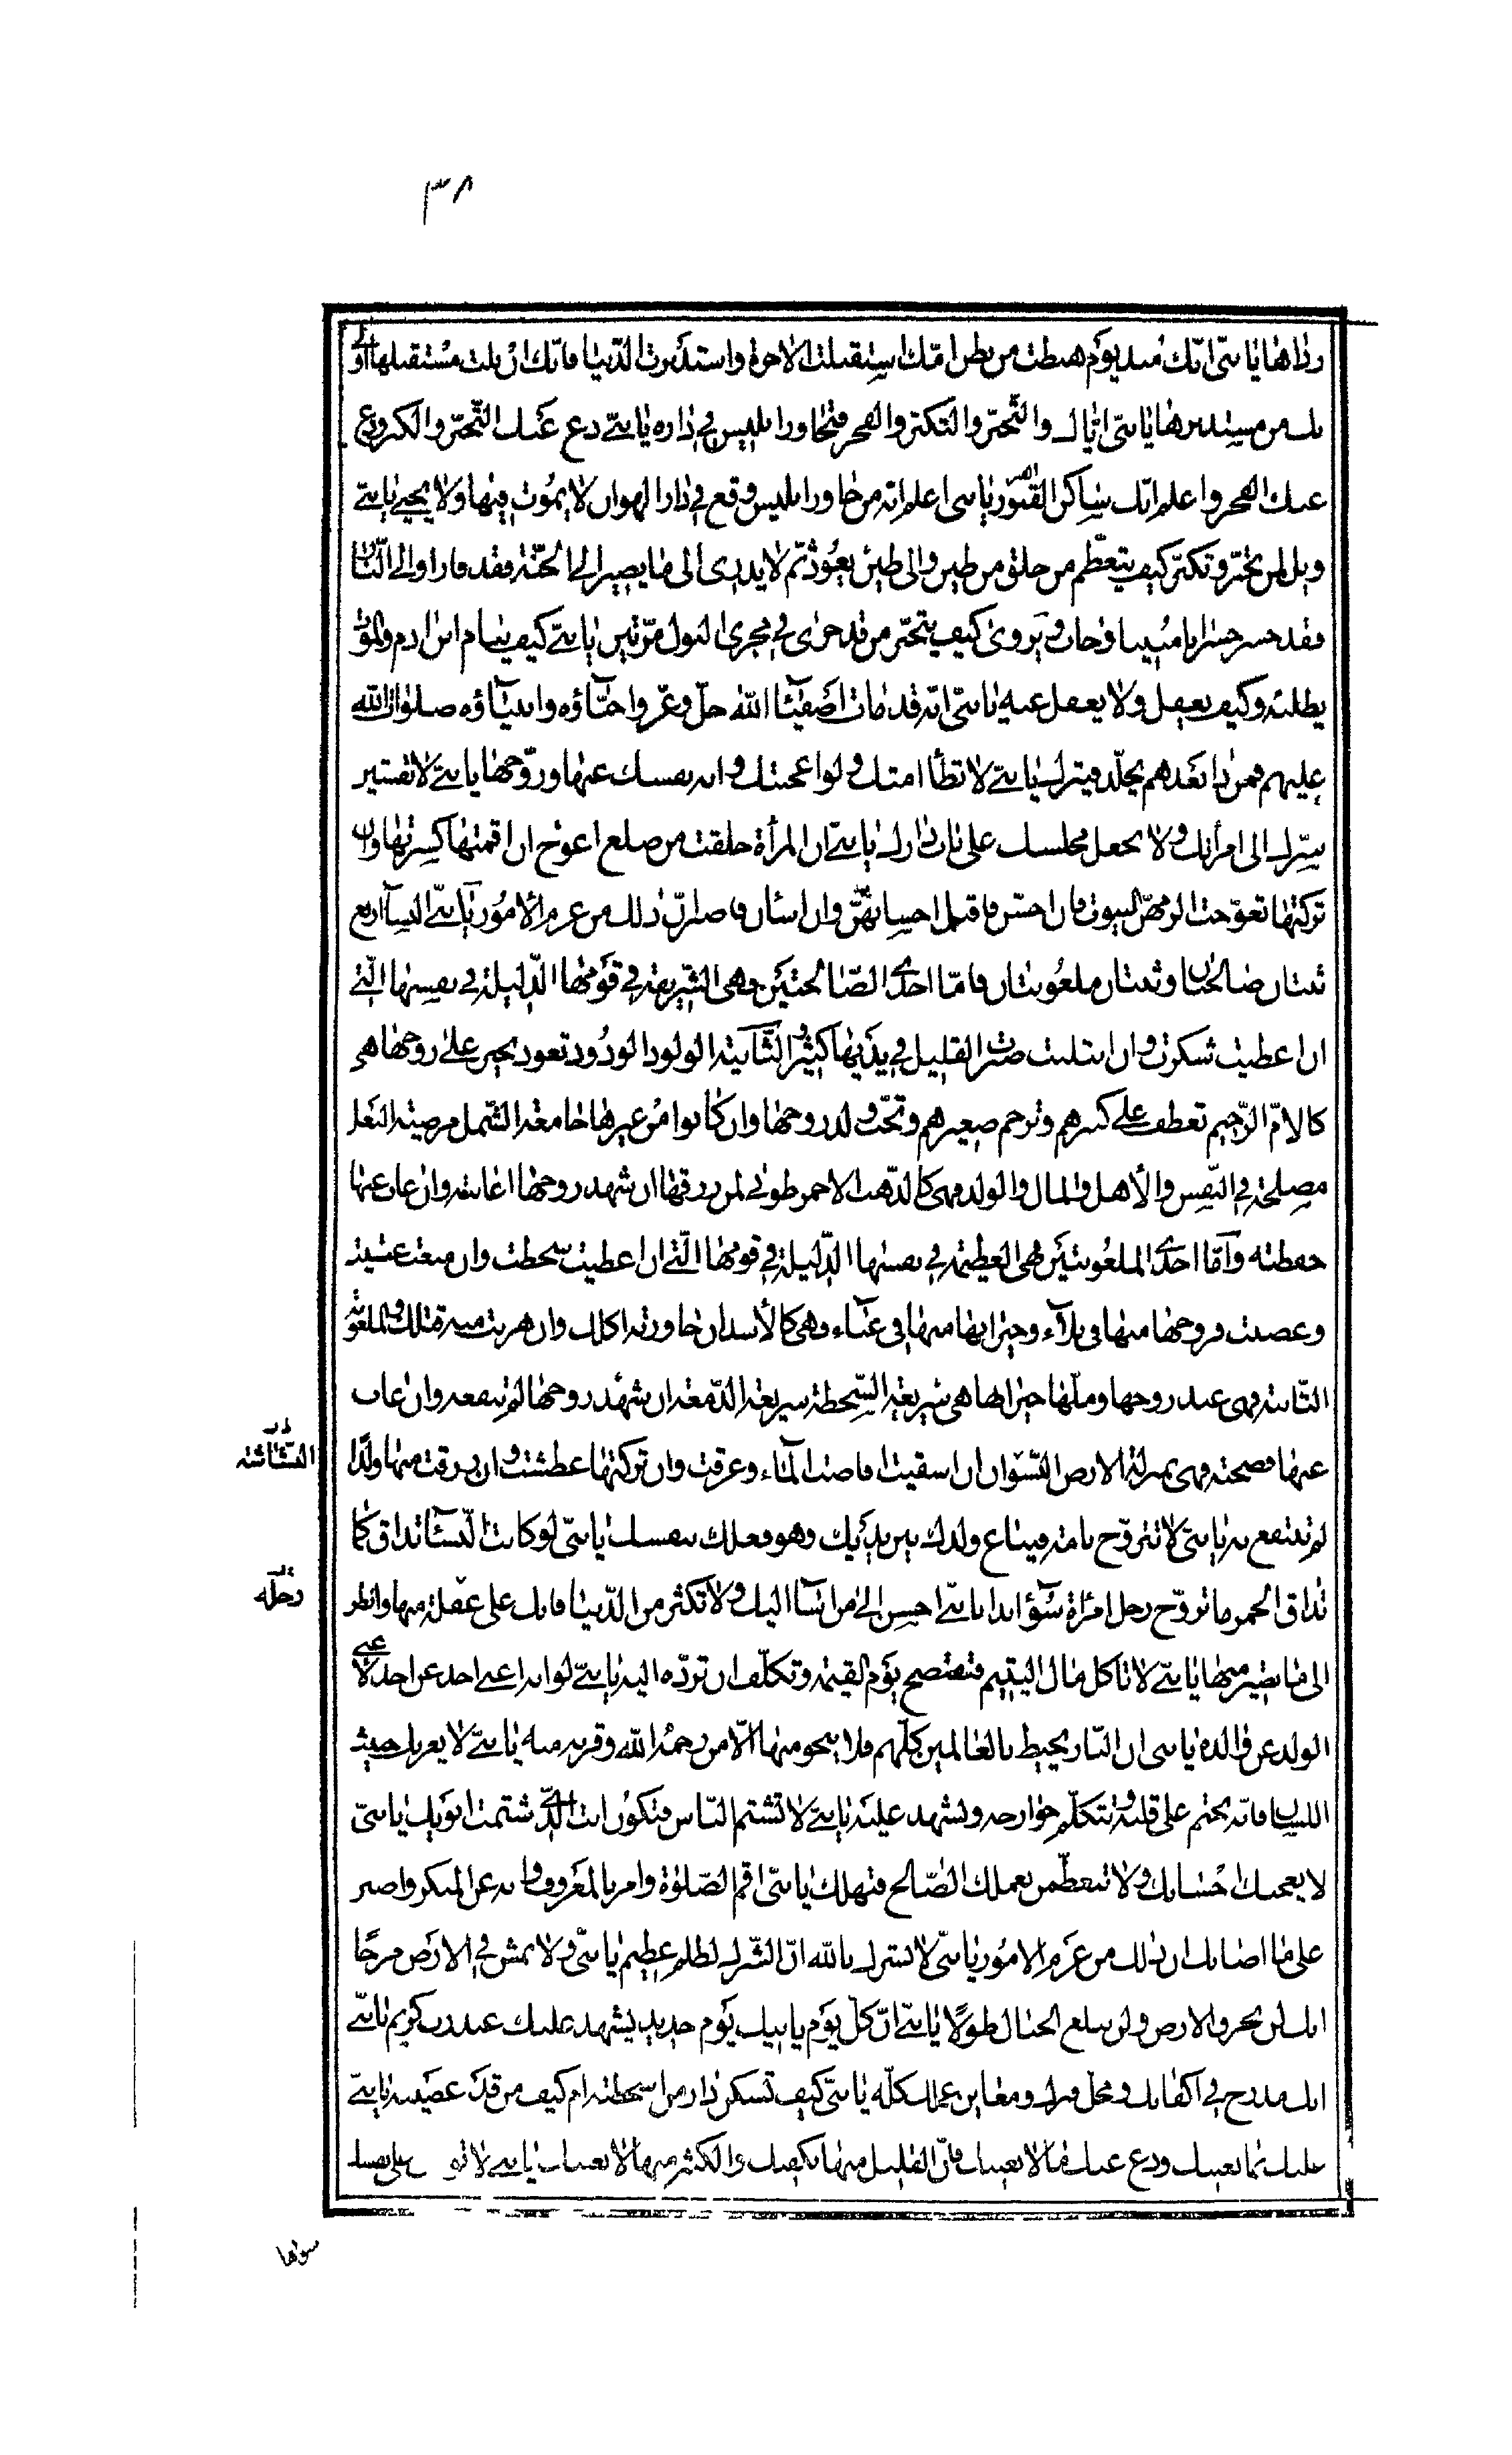 ٣٨
رداها يا بني انك منذ يوم هبطت من بطن امك استقبلت الاخرة واستدبرت الدنيا فانك ان نلت مستقبلها اولى
بك من مستدبرها يا بني اياك والتجبر والتكبر والفخر فتجاور ابليس في داره يا بني دع عنك التجبر والكبر ودع
عنك الفخر واعلم انك ساكن القبور يا بني اعلم انه من جاور ابليس وقع في دار الهوان لا يموت فيها ولا يحيى يا بني
ويل لمن تجبر وتكبر كيف يتعظم من خلق من طين والى طين يعود ثم لا يدري الى ما يصير الى الجنة فقد فاز او الى النار
فقد خسر خسرانا مبينا وخاب ويروى كيف يتجبر من قد جرى في مجرى البول مرتين يا بني كيف ينام ابن ادم والموت
يطلبه وكيف يغفل ولا يغفل عنه يا بني انه قد مات اصفياء الله جل وعز واحباؤه وانبياؤه صلوات الله
عليهم فمن ذا بعدهم يخلد فيترك يا بني لا تطأ امتك ولو اعجبتك وانه نفسك عنها وزوجها يا بني لا تفشين
سرك الى امرأتك ولا تجعل مجلسك على باب دارك يا بني ان المرأة خلقت من ضلع اعوج ان اقمتها كسرتها وان
تركتها تعوجت الزمهن البيوت فان احسن فاقبل احسانهن وان اسأن فاصبر ان ذلك من عزم الامور يا بني النساء اربع
ثنتان صالحتان وثنتان ملعونتان فاما احدى الصالحتين فهي الشريفة في قومها الذليلة في نفسها التي
ان اعطيت شكرت وان ابتليت صبرت القليل في يديها كثير والثانية الولود الودود تعود بخير على زوجها هي
كالام الرحيم تعطف على كبيرهم وترحم صغيرهم وتحب ولد زوجها وان كانوا من غيرها جامعة الشمل مرضية البعل
مصلحة في النفس والاهل والمال والولد فهي كالذهب الاحمر طوبى لمن رزقها ان شهد زوجها اعانته وان غاب عنها
حفظته واما احدى الملعونتين فهي العظيمة في نفسها الذليلة في قومها التي ان اعطيت سخطت وان منعت عتبت
وعصيت فزوجها منها في بلاء وجيرانها منها في عناء وهي كالاسد ان جاورته اكلك وان هربت منه قتلك والملعونة
الثانية فهي عند زوجها وملها جيرانها هي سريعة السخطة سريعة الدمعة ان شهد زوجها لم تنفعه وان غاب
عنها فضحته فهي بمنزلة الارض النشوان ان اسقيت افاضت الماء وغرقت وان تركتها عطشت وان رزقت منها ولدا
النشاشة
لم تنتفع به يا بني لا تتزوج بامة فيباع ولدك بين يديك وهو فعلك بنفسك يا بني لو كانت النساء تذاق كما
تذاق الخمر ما تزوج رجل امرأة سوء ابدا يا بني احسن الى من اساء اليك ولا تكثر من الدنيا فانك على غفلة منها وانظر
رحلة
الى ما تصير منها يا بني لا تأكل مال اليتيم فتفتضح يوم القيمة وتكلف ان ترده اليه يا بني لو انه اغنى احد عن احد لاغنى
الولد عن والده يا بني ان النار يحيط بالعالمين كلهم فلا ينجو منها الا من رحمه الله وقربه منه يا بني لا يغرنك خبيث
اللسان فانه يختم على قلبه وتتكلم جوارحه وتشهد عليه يا بني لا تشتم الناس فتكون انت الذي شتمت ابويك يا بني
لا يعجبك احسانك ولا تتعظمن بعملك الصالح فتهلك يا بني اقم الصلوة وامر بالمعروف وانه عن المنكر واصبر
على ما اصابك ان ذلك من عزم الامور يا بني لا تشرك بالله ان الشرك لظلم عظيم يا بني ولا تمش في الارض مرحا
انك لن تخرق الارض ولن تبلغ الجبال طولا يا بني ان كل يوم يأتيك يوم جديد يشهد عليك عند رب كريم يا بني
انك مدرج في اكفانك ومحل قبرك ومعاين عملك كله يا بني كيف تسكن دار من اسخطته ام كيف من قد عصيته يا بني
عليك بما يعنيك ودع عنك ما لا يعنيك فان القليل منها يكفيك والكثير منها لا يعنيك يا بني لا على نفسك
سواها